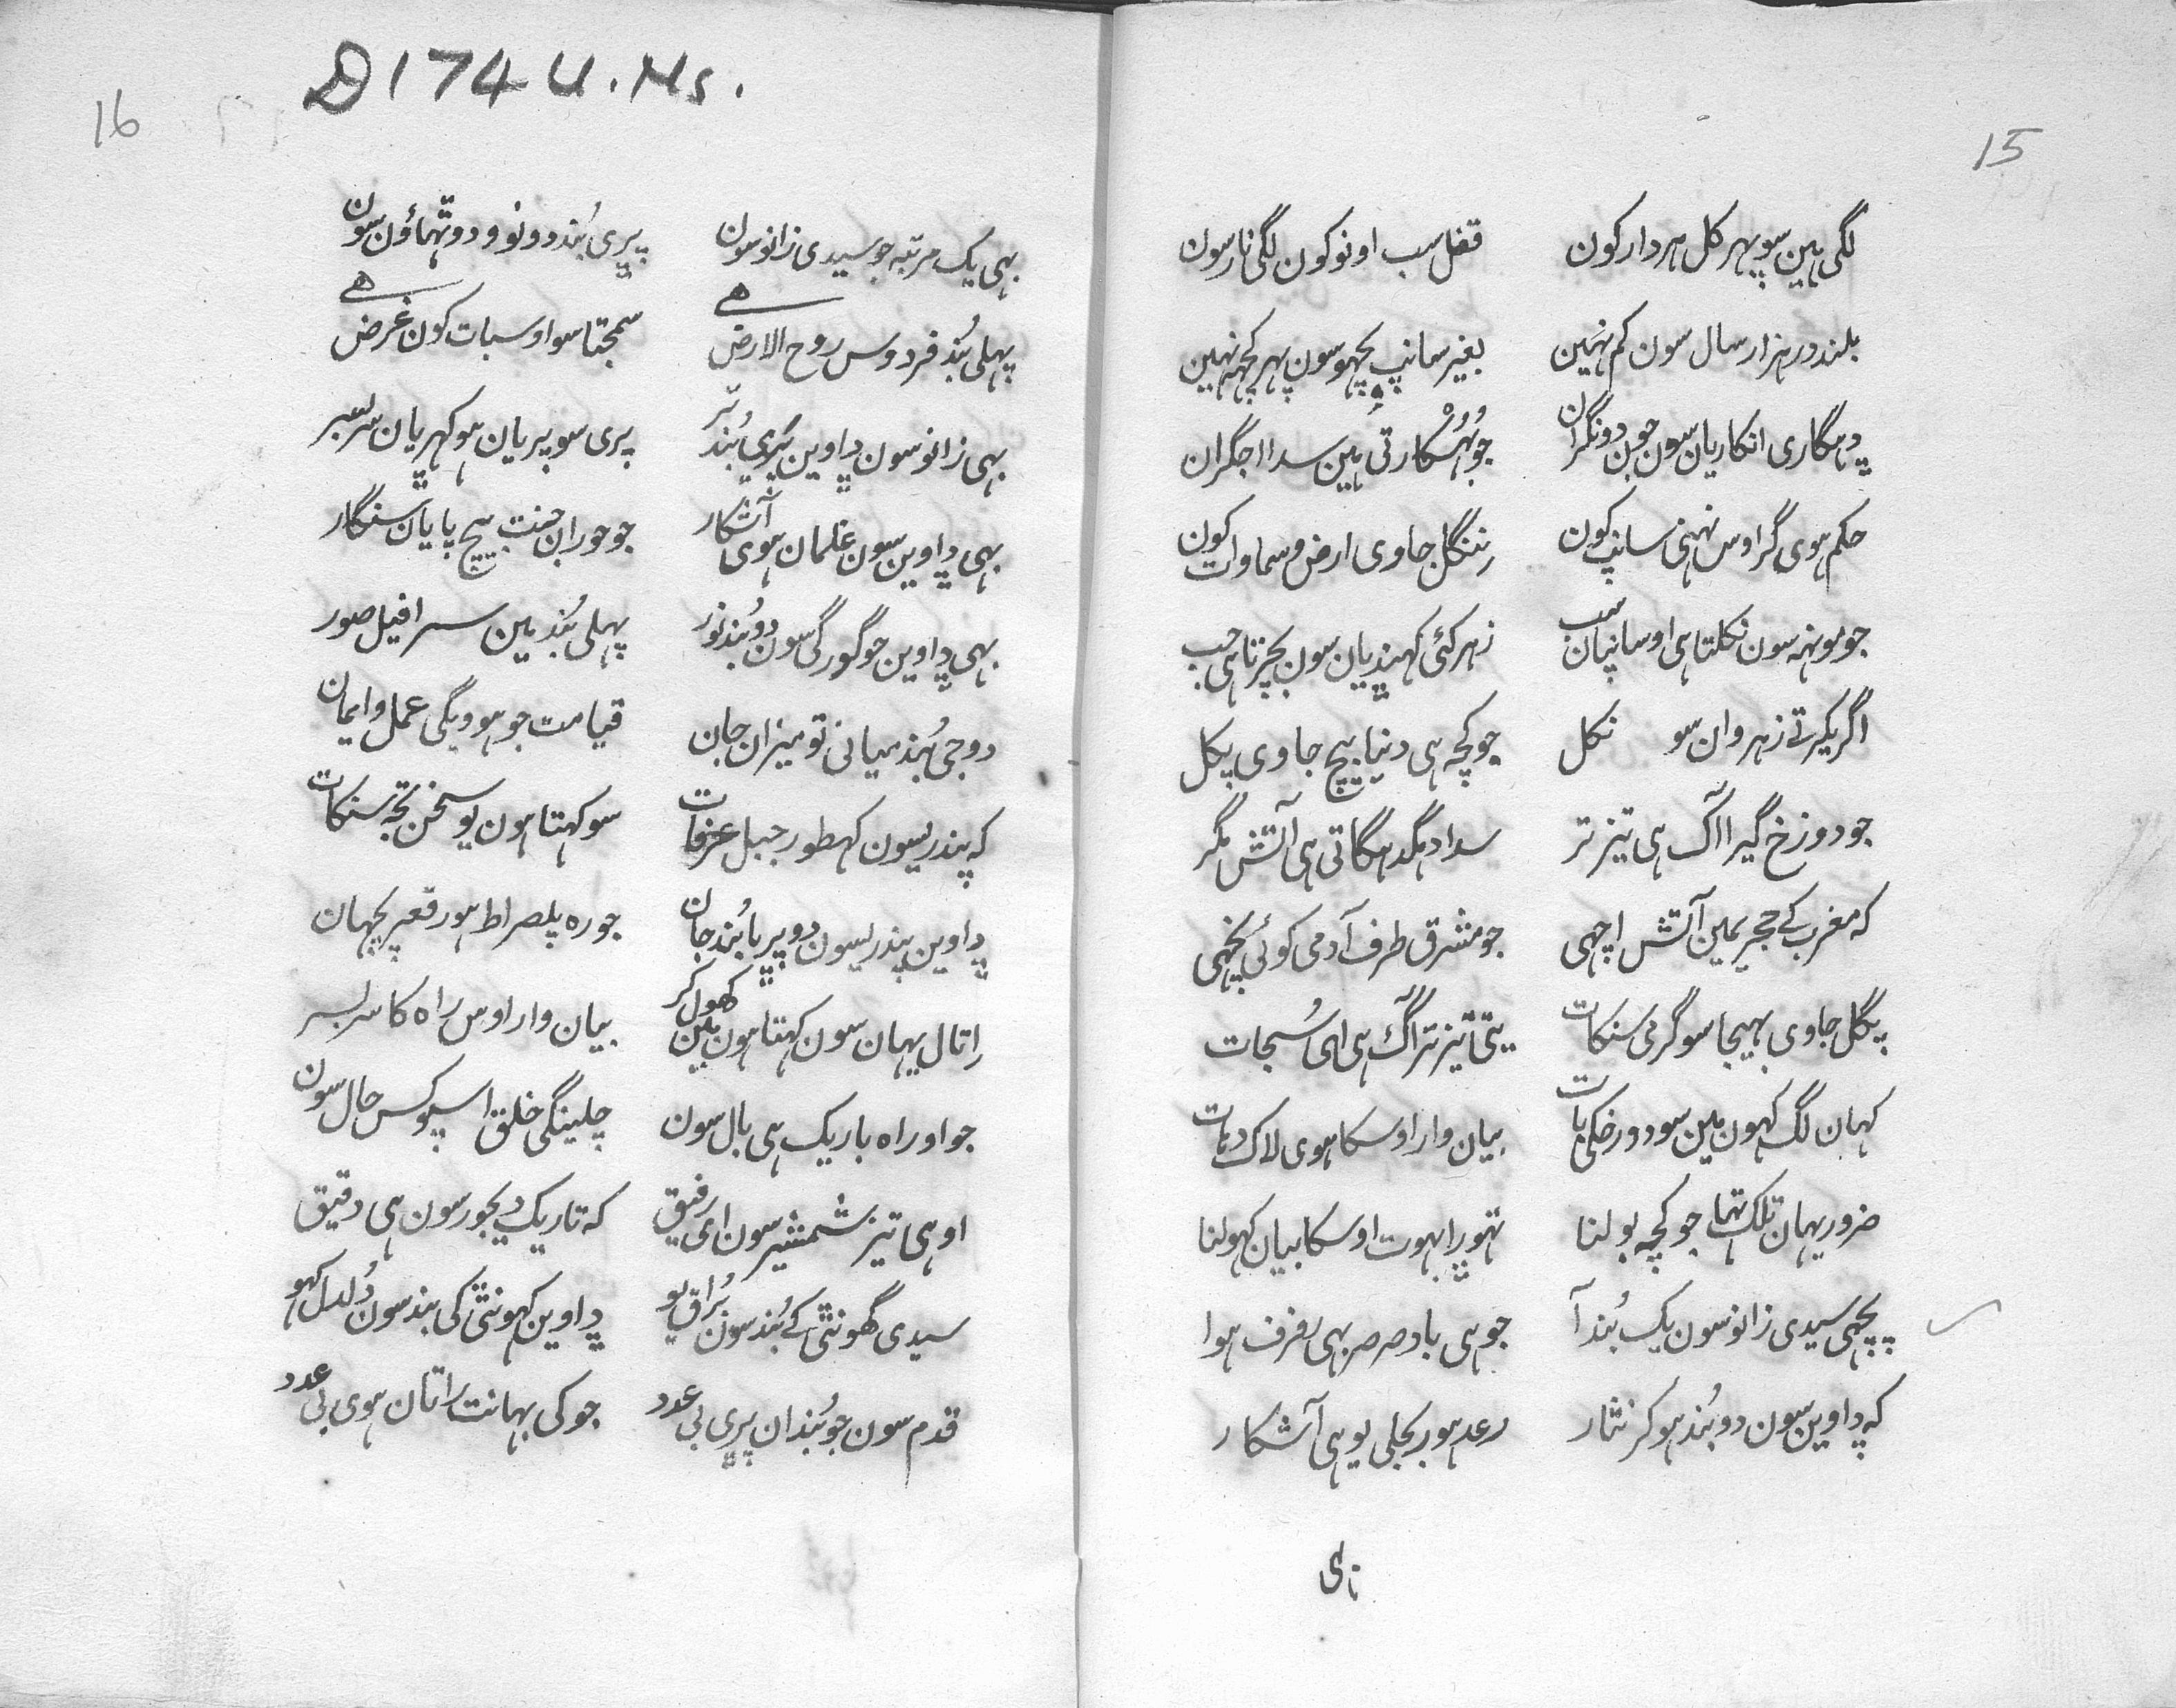 15
لگی ہین سو پہر کل ہر دار کون قفل سب اونو کون لگی نار سون
بلند در ہزار سال سون کم نہین بغیر سانپ بچھو سون پہر کچہ نہین
دہگاری انگاریان سون جون دونگران جو ہُسکارتی ہین سدا اجگران
حکم ہوی گر اوس نہنی سانپ کون ننگل جاوی ارض و سماوات کون
جو مونہہ سون نکلتا ہی او سانپان سب زہر کئی کہندیان سون بچرتا ہی جب
اگر یکرتی زہر وان سو نکل جو کچہ ہی دنیا بیچ جاوی پگل
جو دوزخ گیرا آگ ہی تیز تر سدا دہگدہگاتی ہی آتش مگر
کہ مغرب کے حجریمین آتش اچہی جو مشرق طرف آدمی کوئی
پگل جاوی بہیجا سو گرمی سنگات یتی تیز تر آگ ہی ای سُجات
کہان لگ کہون مین سو دوزخکی بات بیان وار اوسکا ہوی لاک دہات
ضرور یہان تلک تہا جو کچہ بولنا تہورا بہوت اوسکا بیان کہولنا
پچہی سیدی زانو سون یک بُند آ جو ہی باد صرصر بہی رفرف ہوا
کہ داوین سون دو بُند ہو کر نثار رعد ہور بجلی یو ہی آشکار
بہی
D174 U. Ms.
16
بہی یک مرتبہ جو سیدی زانو سون پری بُند دونو و دو تہماؤن سون
پہلی بُند فردوس روح الارض ہے سمجتا سو اوسبات کون غرض ہے
بہی زانو سون داوین پری بُند پری سو پریان ہو کہریان سربسر
بہی داوین سون غلمان ہوی آشکار جو حوران جنت بیچ پایان سنگار
بہی داوین جو گورگی سون دو بُند نور پہلی بُند مین سرافیل صور
دوجی بُند میانی تو میزان جان قیامت جو ہوویگی عمل و ایمان
کہ پندریسون کہطور جبل عرفات سو کہتا ہون یو سخن تجہ سنگات
داوین پندریسون دو پریا بُند جان جو رہ پلصراط ہور قعر پچہان
اتال یہان سون کہتا ہون مین کھول کر بیان وار اوس راہ کا سربسر
جو او راہ باریک ہی بال سون چلینگی خلق اسپو کس حال سون
او ہی تیز شمشیر سون ای رفیق کہ تاریک دیجور سون ہی دقیق
سیدی گھونٹی کے بُند سون بُراق یو داوین کہونٹی کی بند سون دُلدل کہو
قدم سون جو بُندان پری بی عدد جو کی بہانت راتان ہوی بی عدد